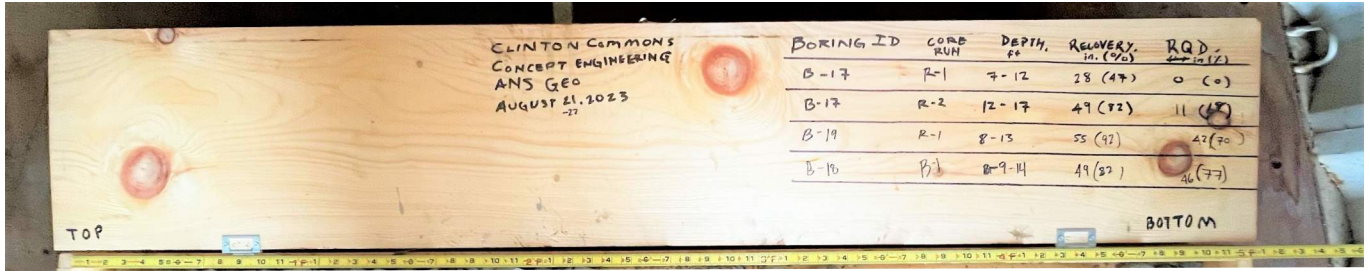 CLINTON COMMONS
CONCEPT ENGINEERING
ANS GEO
AUGUST 21, 2023
-22
BORING ID CORE RUN DEPTH, ft RECOVERY, in. (%) RQD, in (%)
B-17 R-1 7-12 28 (47) 0 (0)
B-17 R-2 12-17 49 (82) 11 (18)
B-19 R-1 8-13 55 (92) 42 (70)
B-18 9-14 49 (82) 46 (77)
TOP
BOTTOM